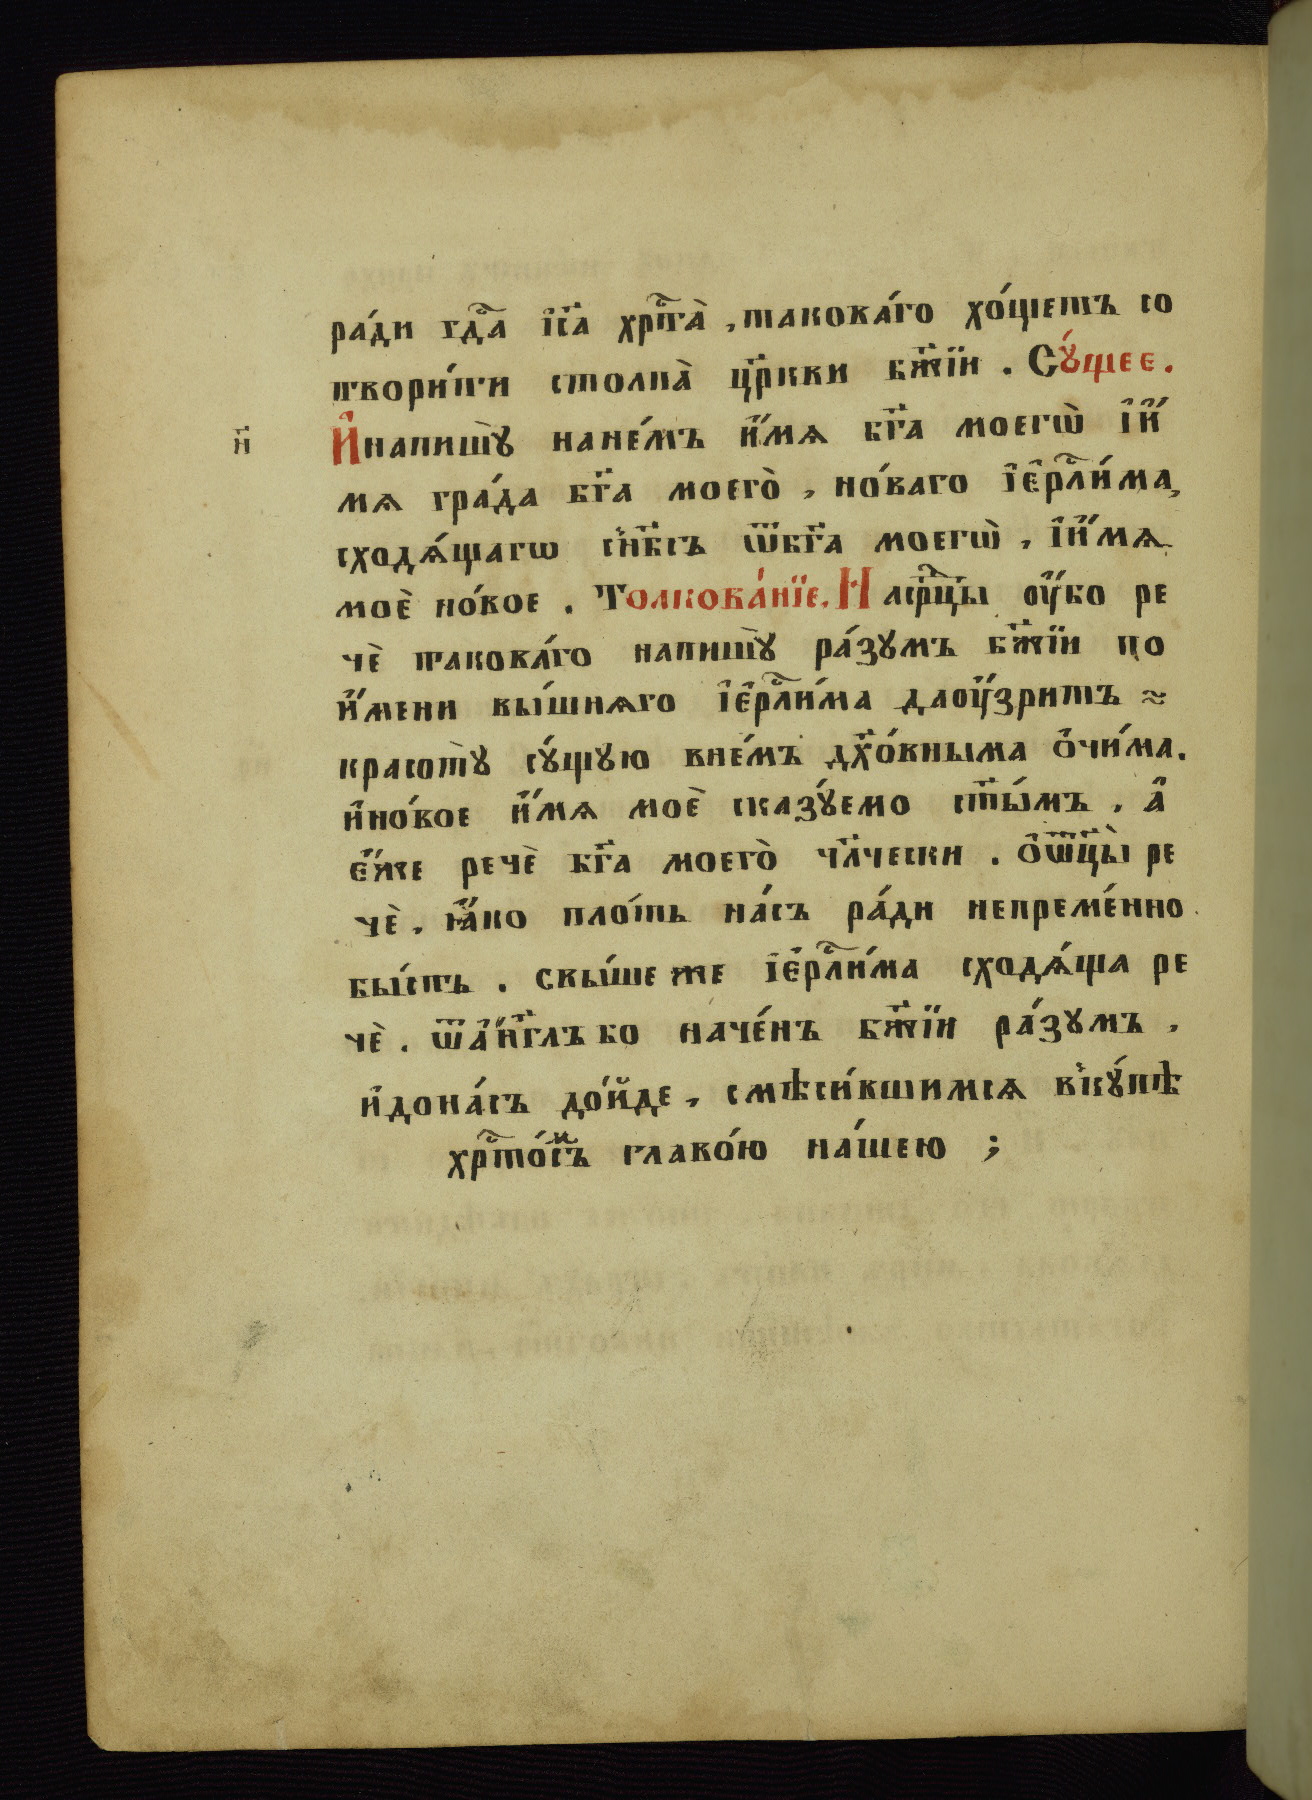 ра́ди гдⷭ҇а і҆и҃са хрⷭ҇та̀ , такова́го хо́щетъ со
твори́ти столпа̀ цр҃кви бж҃їи . Сꙋ́щее .
н҃ И҆напишꙋ̀ нане́мъ и҆́мѧ бг҃а моегѡ̀ і҆и҆́
мѧ гра́да бг҃а моего̀ , но́ваго і҆е҆рⷭ҇ли́ма ,
сходѧ́щагѡ сн҃бсъ ѿбг҃а моегѡ̀ , і҆и҆́мѧ
моѐ но́вое . Толкова́нїе . На срⷣцы ᲂу҆́бо ре
чѐ такова́го напишꙋ̀ ра́зꙋмъ бж҃їи по
и҆́мени вы́шнѧго і҆е҆рⷭ҇ли́ма даᲂу҆́зритъ ≈
красотꙋ̀ сꙋ́щꙋю вне́мъ дх҃о́вныма ѻ҆чи́ма .
и҆но́вое и҆́мѧ моѐ сказꙋ́емо ст҃ы́мъ , а҆
є҆́же речѐ бг҃а моего̀ чл҃чески . ѻ҆ѿц҃ы̀ ре
чѐ . ꙗ҆́ко пло́ть на́съ ра́ди непреме́нно
бы́сть . свы́ше же і҆е҆рⷭ҇ли́ма сходѧ́ща ре
чѐ . ѿа҆́нг҃лъ бо наче́нъ бж҃їи ра́зꙋмъ ,
и҆дона́съ до́йде , смѣси́вшимсѧ вкꙋ́пѣ
хрⷭ҇то́съ главо́ю на́шею ;